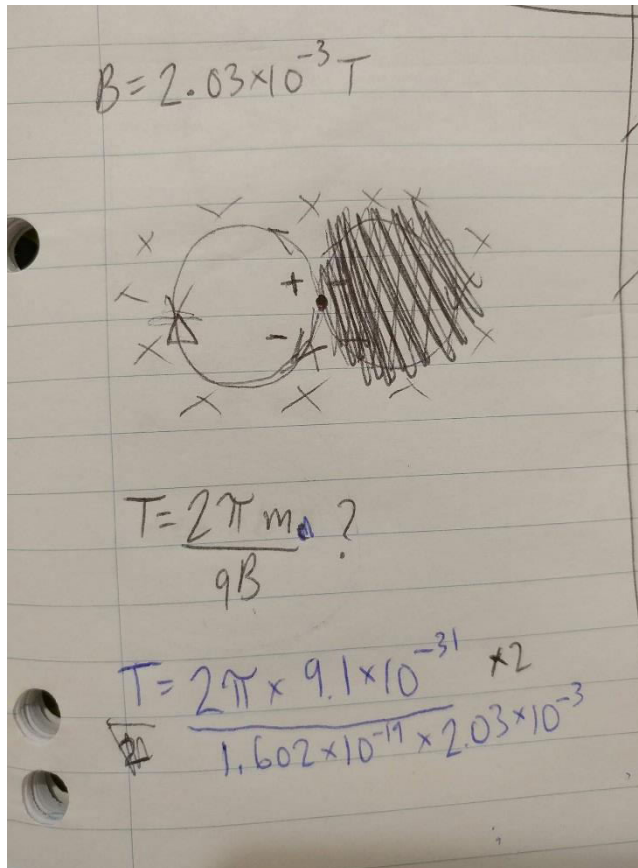 B = 2.03×10⁻³ T
× × × × ×
× + ×
× -
× × × ×
T = 2πm / qB ?
T = 2π × 9.1×10⁻³¹ ×2 / 1.602×10⁻¹⁹ × 2.03×10⁻³